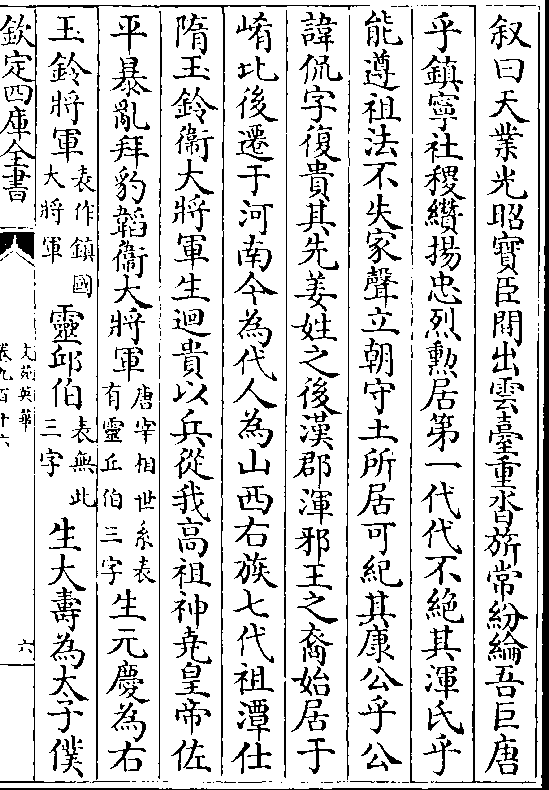 叙曰天業光昭寶臣閒出雲臺重沓旂常紛綸吾巨唐
乎鎮寧社稷纘揚忠烈勲居第一代代不絕其渾氏乎
能遵祖法不失家聲立朝守土所居可紀其康公乎公
諱侃字復貴其先姜姓之後漢郡渾邪王之裔始居于
崤北後遷于河南今為代人為山西右族七代祖潭仕
隋玉鈴衞大將軍生迴貴以兵從我高祖神堯皇帝佐
平暴亂拜豹韜衞大將軍唐宰相世系表有靈丘伯三字生元慶為右
玉鈴將軍表作鎮國大將軍靈邱伯表無此三字生大壽為太子僕
欽定四庫全書
文苑英華
卷九百十六
六